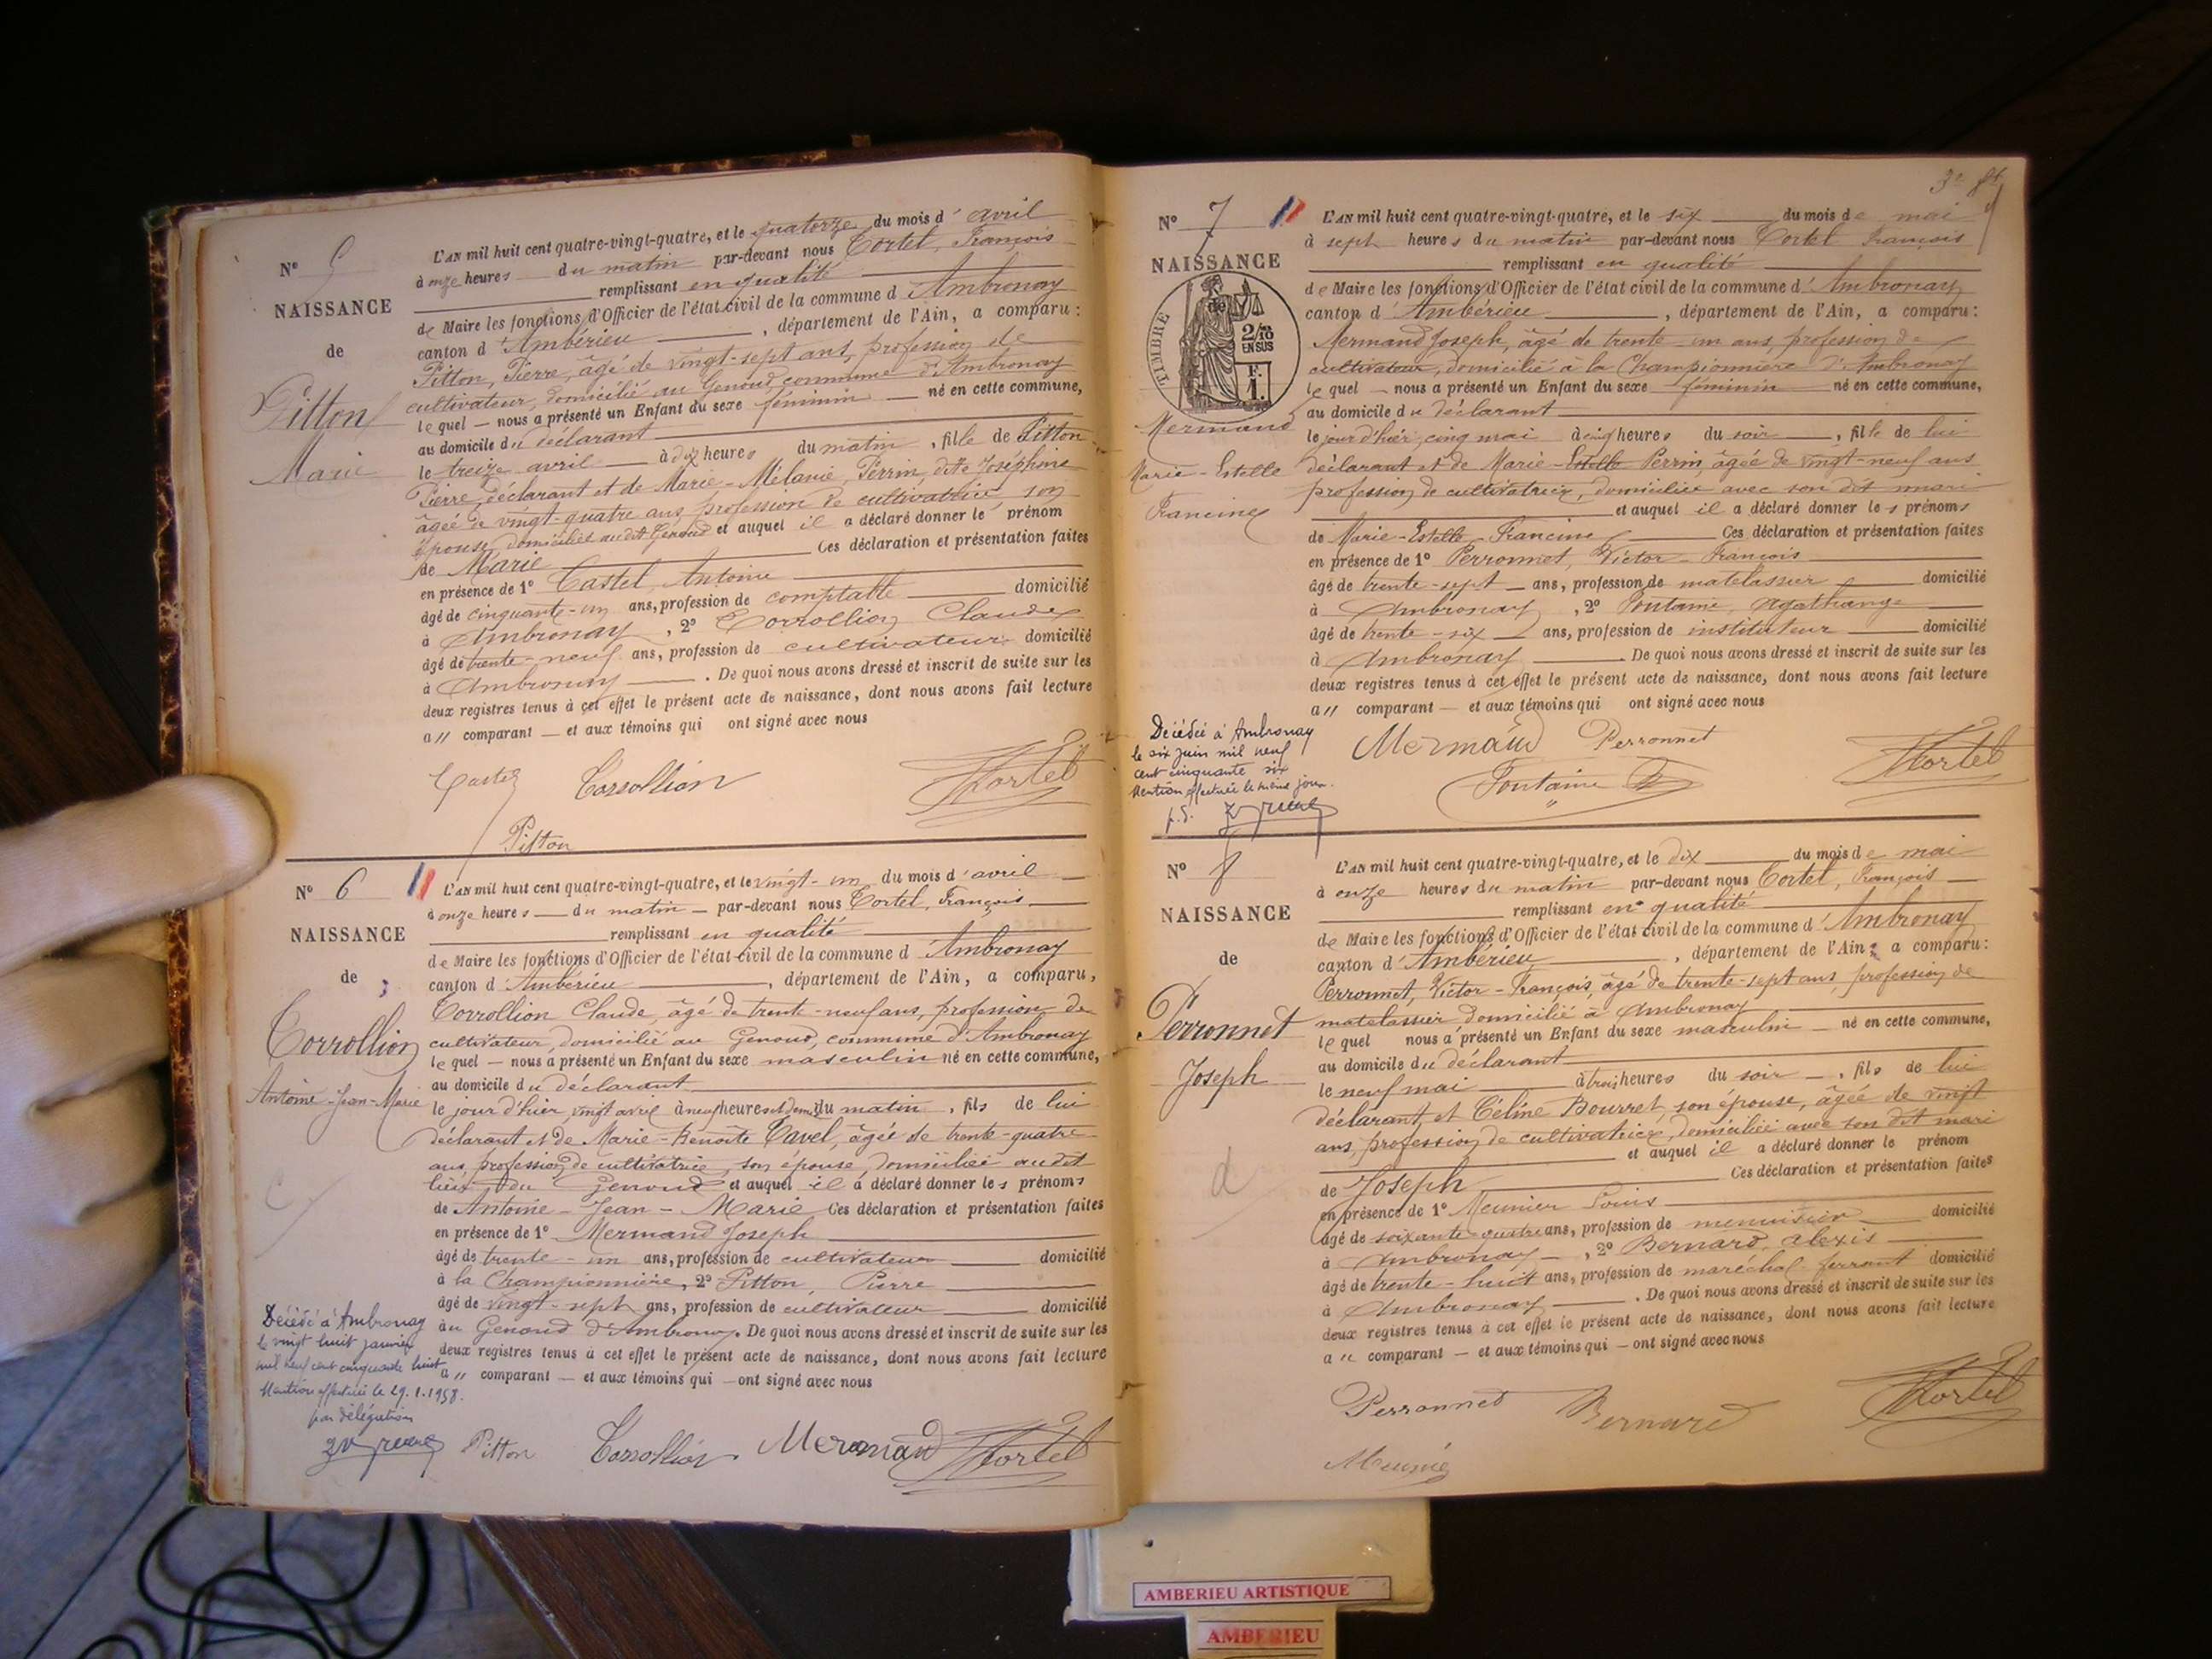 N° 5
NAISSANCE
de
Pitton
Marie
L'AN mil huit cent quatre-vingt-quatre, et le quatorze du mois d' avril
à onze heures du matin par-devant nous Tortel, François
remplissant en qualité
de Maire les fonctions d'Officier de l'état civil de la commune d Ambronay
canton d'Ambérieu, département de l'Ain, a comparu:
Pitton, Pierre, âgé de vingt-sept ans, profession de
cultivateur, domicilié au Genoud, commune d'Ambronay
lequel — nous a présenté un Enfant du sexe féminin — né en cette commune,
au domicile du déclarant
le treize avril — à dix heures du matin, fille de Pitton
Pierre, déclarant et de Marie-Mélanie, Perrin, dite Joséphine
âgée de vingt-quatre ans, profession de cultivatrice son
épouse, domiciliés au dit Genoud et auquel il a déclaré donner le prénom
de Marie Ces déclaration et présentation faites
en présence de 1° Castel, Antoine
âgé de cinquante-un ans, profession de comptable domicilié
à Ambronay, 2° Corrollion Claude
âgé de trente-neuf ans, profession de cultivateur domicilié
à Ambronay. De quoi nous avons dressé et inscrit de suite sur les
deux registres tenus à cet effet le présent acte de naissance, dont nous avons fait lecture
a // comparant — et aux témoins qui ont signé avec nous
Castel Corrollion Tortel
Pitton
N° 6
NAISSANCE
de
Corrollion
Antoine-Jean-Marie
L'AN mil huit cent quatre-vingt-quatre, et le vingt-un du mois d'avril
à onze heures — du matin — par-devant nous Tortel, François
remplissant en qualité
de Maire les fonctions d'Officier de l'état civil de la commune d Ambronay
canton d'Ambérieu, département de l'Ain, a comparu,
Corrollion Claude, âgé de trente-neuf ans, profession de
cultivateur, domicilié au Genoud, commune d'Ambronay
lequel — nous a présenté un Enfant du sexe masculin né en cette commune,
au domicile du déclarant
le jour d'hier, vingt avril à neuf heures et demie du matin, fils de lui
déclarant et de Marie-Benoîte Cavel, âgée de trente-quatre
ans, profession de cultivatrice, son épouse, domiciliée audit
lieu du Genoud et auquel il a déclaré donner les prénoms
de Antoine-Jean-Marie Ces déclaration et présentation faites
en présence de 1° Mermand Joseph
âgé de trente-un ans, profession de cultivateur domicilié
à la Championnière, 2° Pitton, Pierre
âgé de vingt-sept ans, profession de cultivateur domicilié
au Genoud d'Ambronay. De quoi nous avons dressé et inscrit de suite sur les
deux registres tenus à cet effet le présent acte de naissance, dont nous avons fait lecture
a // comparant — et aux témoins qui — ont signé avec nous
Décédé à Ambronay
le vingt huit janvier
mil neuf cent cinquante huit
Mention effectuée le 29.1.1958.
par délégation
Pitton Corrollion Mermand Tortel
N° 7
NAISSANCE
de
TIMBRE
2/10
EN SUS
F.
1.
Mermand
Marie-Estelle
Francine
L'AN mil huit cent quatre-vingt-quatre, et le six du mois de mai
à sept heures du matin par-devant nous Tortel François
remplissant en qualité
de Maire les fonctions d'Officier de l'état civil de la commune d'Ambronay
canton d'Ambérieu, département de l'Ain, a comparu:
Mermand Joseph, âgé de trente-un ans, profession de
cultivateur, domicilié à la Championnière d'Ambronay
lequel — nous a présenté un Enfant du sexe féminin né en cette commune,
au domicile du déclarant
le jour d'hier, cinq mai à cinq heures du soir, fille de lui
déclarant et de Marie-Estelle Perrin, âgée de vingt-neuf ans
profession de cultivatrice, domiciliée avec son dit mari
et auquel il a déclaré donner les prénoms
de Marie-Estelle Francine Ces déclaration et présentation faites
en présence de 1° Perronnet, Victor-François
âgé de trente-sept ans, profession de matelassier domicilié
à Ambronay, 2° Fontaine, Agathange
âgé de trente-six ans, profession de instituteur domicilié
à Ambronay. De quoi nous avons dressé et inscrit de suite sur les
deux registres tenus à cet effet le présent acte de naissance, dont nous avons fait lecture
a // comparant — et aux témoins qui ont signé avec nous
Décédée à Ambronay
le six juin mil neuf
cent cinquante six
Mention effectuée le même jour.
Mermand Perronnet Tortel
Fontaine
N° 8
NAISSANCE
de
Perronnet
Joseph
d
L'AN mil huit cent quatre-vingt-quatre, et le dix du mois de mai
à onze heures du matin par-devant nous Tortel, François
remplissant en qualité
de Maire les fonctions d'Officier de l'état civil de la commune d'Ambronay
canton d'Ambérieu, département de l'Ain, a comparu:
Perronnet, Victor-François, âgé de trente-sept ans, profession de
matelassier domicilié à Ambronay
lequel nous a présenté un Enfant du sexe masculin né en cette commune,
au domicile du déclarant
le neuf mai à trois heures du soir, fils de lui
déclarant, et Céline Bourret, son épouse, âgée de vingt
ans, profession de cultivatrice, domiciliée avec son dit mari
et auquel il a déclaré donner le prénom
de Joseph Ces déclaration et présentation faites
en présence de 1° Meunier Louis
âgé de soixante-quatre ans, profession de menuisier domicilié
à Ambronay, 2° Bernard, Alexis
âgé de trente-huit ans, profession de maréchal-ferrant domicilié
à Ambronay. De quoi nous avons dressé et inscrit de suite sur les
deux registres tenus à cet effet le présent acte de naissance, dont nous avons fait lecture
a // comparant — et aux témoins qui — ont signé avec nous
Perronnet Bernard Tortel
Meunié
AMBERIEU ARTISTIQUE
AMBERIEU